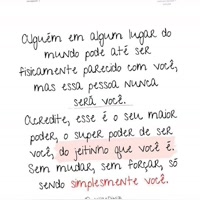 Alguém em algum lugar do
mundo pode até ser
fisicamente parecido com você,
mas essa pessoa nunca
será você.
Acredite, esse é o seu maior
poder, o super poder de ser
você, do jeitinho que você é.
Sem mudar, sem forçar, só
sendo simplesmente você.